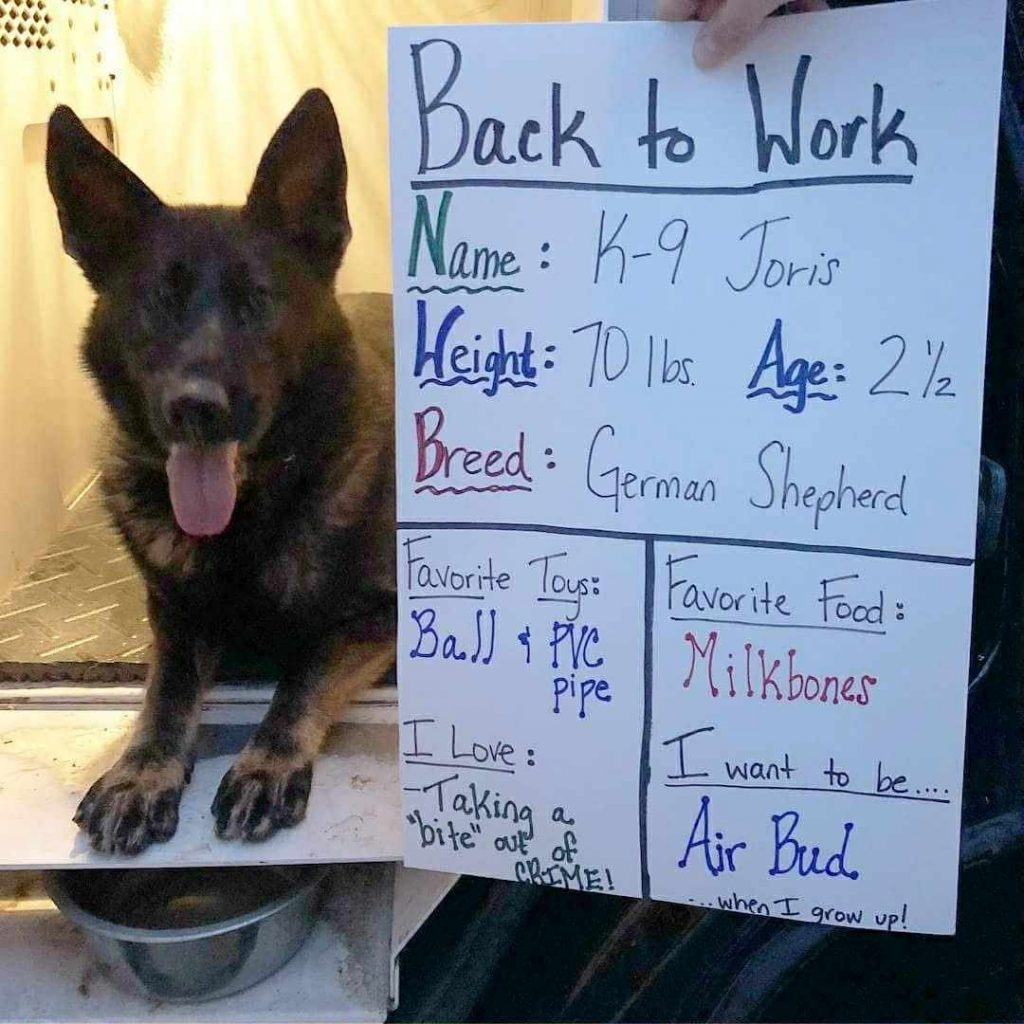 Back to Work
Name: K-9 Joris
Weight: 70 lbs. Age: 2 ½
Breed: German Shepherd
Favorite Toys:
Ball & PVC
pipe
I Love:
-Taking a
"bite" out of
CRIME!
Favorite Food:
Milkbones
I want to be....
Air Bud
...when I grow up!